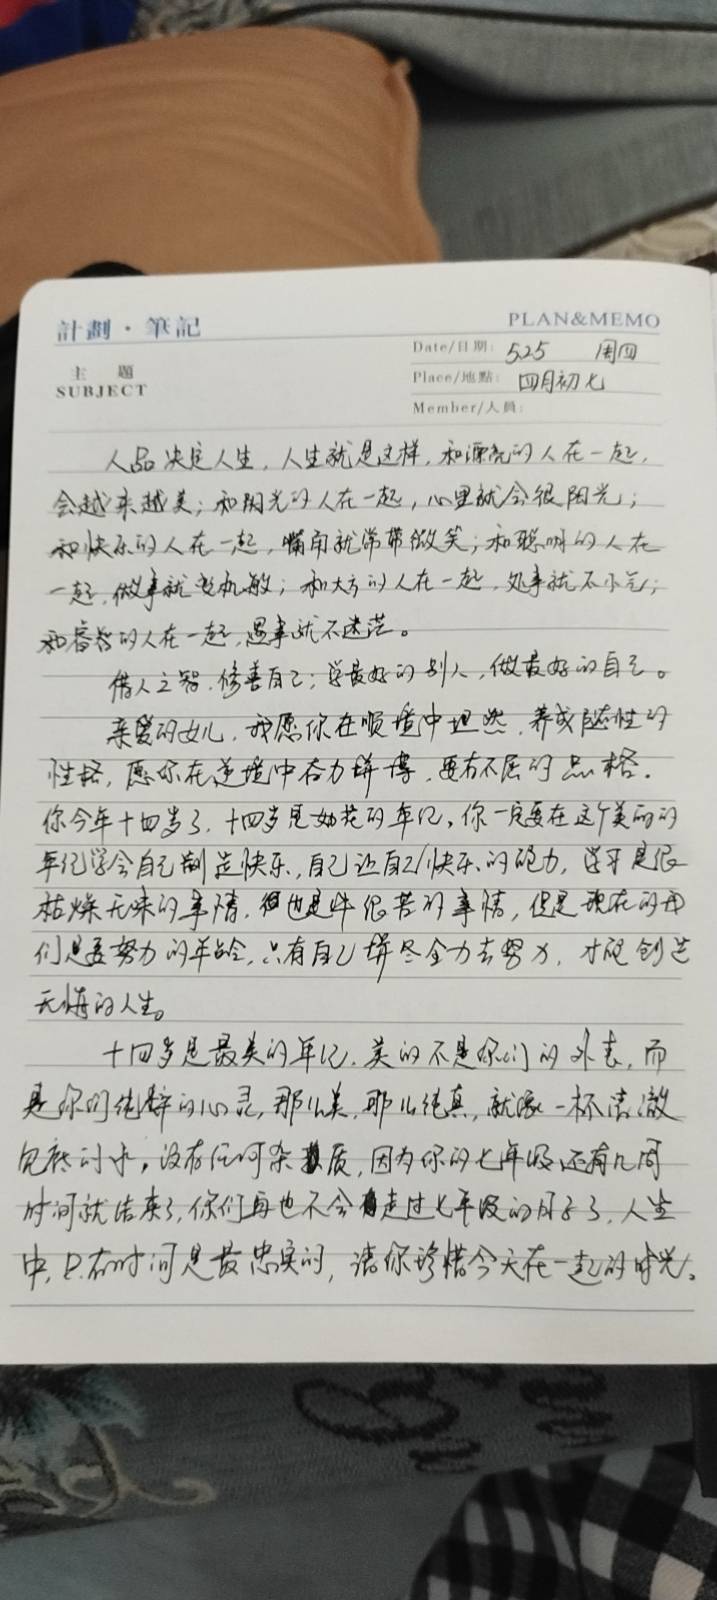 計劃·筆記
PLAN&MEMO
主 題
SUBJECT
Date/日期: 525 周四
Place/地點: 四月初七
Member/人員:
人品决定人生，人生就是这样，和漂亮的人在一起，
会越来越美；和阳光的人在一起，心里就会很阳光；
和快乐的人在一起，嘴角就常带微笑；和聪明的人在
一起，做事就变机敏；和大方的人在一起，处事就不小气；
和睿智的人在一起，遇事就不迷茫。
借人之智，修善自己；学最好的别人，做最好的自己。
亲爱的女儿，我愿你在顺境中坦然，养成随性的
性格，愿你在逆境中奋力拼搏，要有不屈的品格。
你今年十四岁了，十四岁是如花的年纪，你一定要在这个美丽的
年纪学会自己制造快乐，自己让自己快乐的能力，学习是很
枯燥无味的事情，但也是件很苦的事情，但是现在的你
们是要努力的年龄，只有自己拼尽全力去努力，才能创造
无悔的人生。
十四岁是最美的年纪，美的不是你们的外表，而
是你们纯粹的心灵，那么美，那么纯真，就像一杯清澈
见底的水，没有任何杂质，因为你的七年级还有几周
时间就结束了，你们再也不会走过七年级的日子了，人生
中，只有时间是最忠实的，请你珍惜今天在一起的时光。